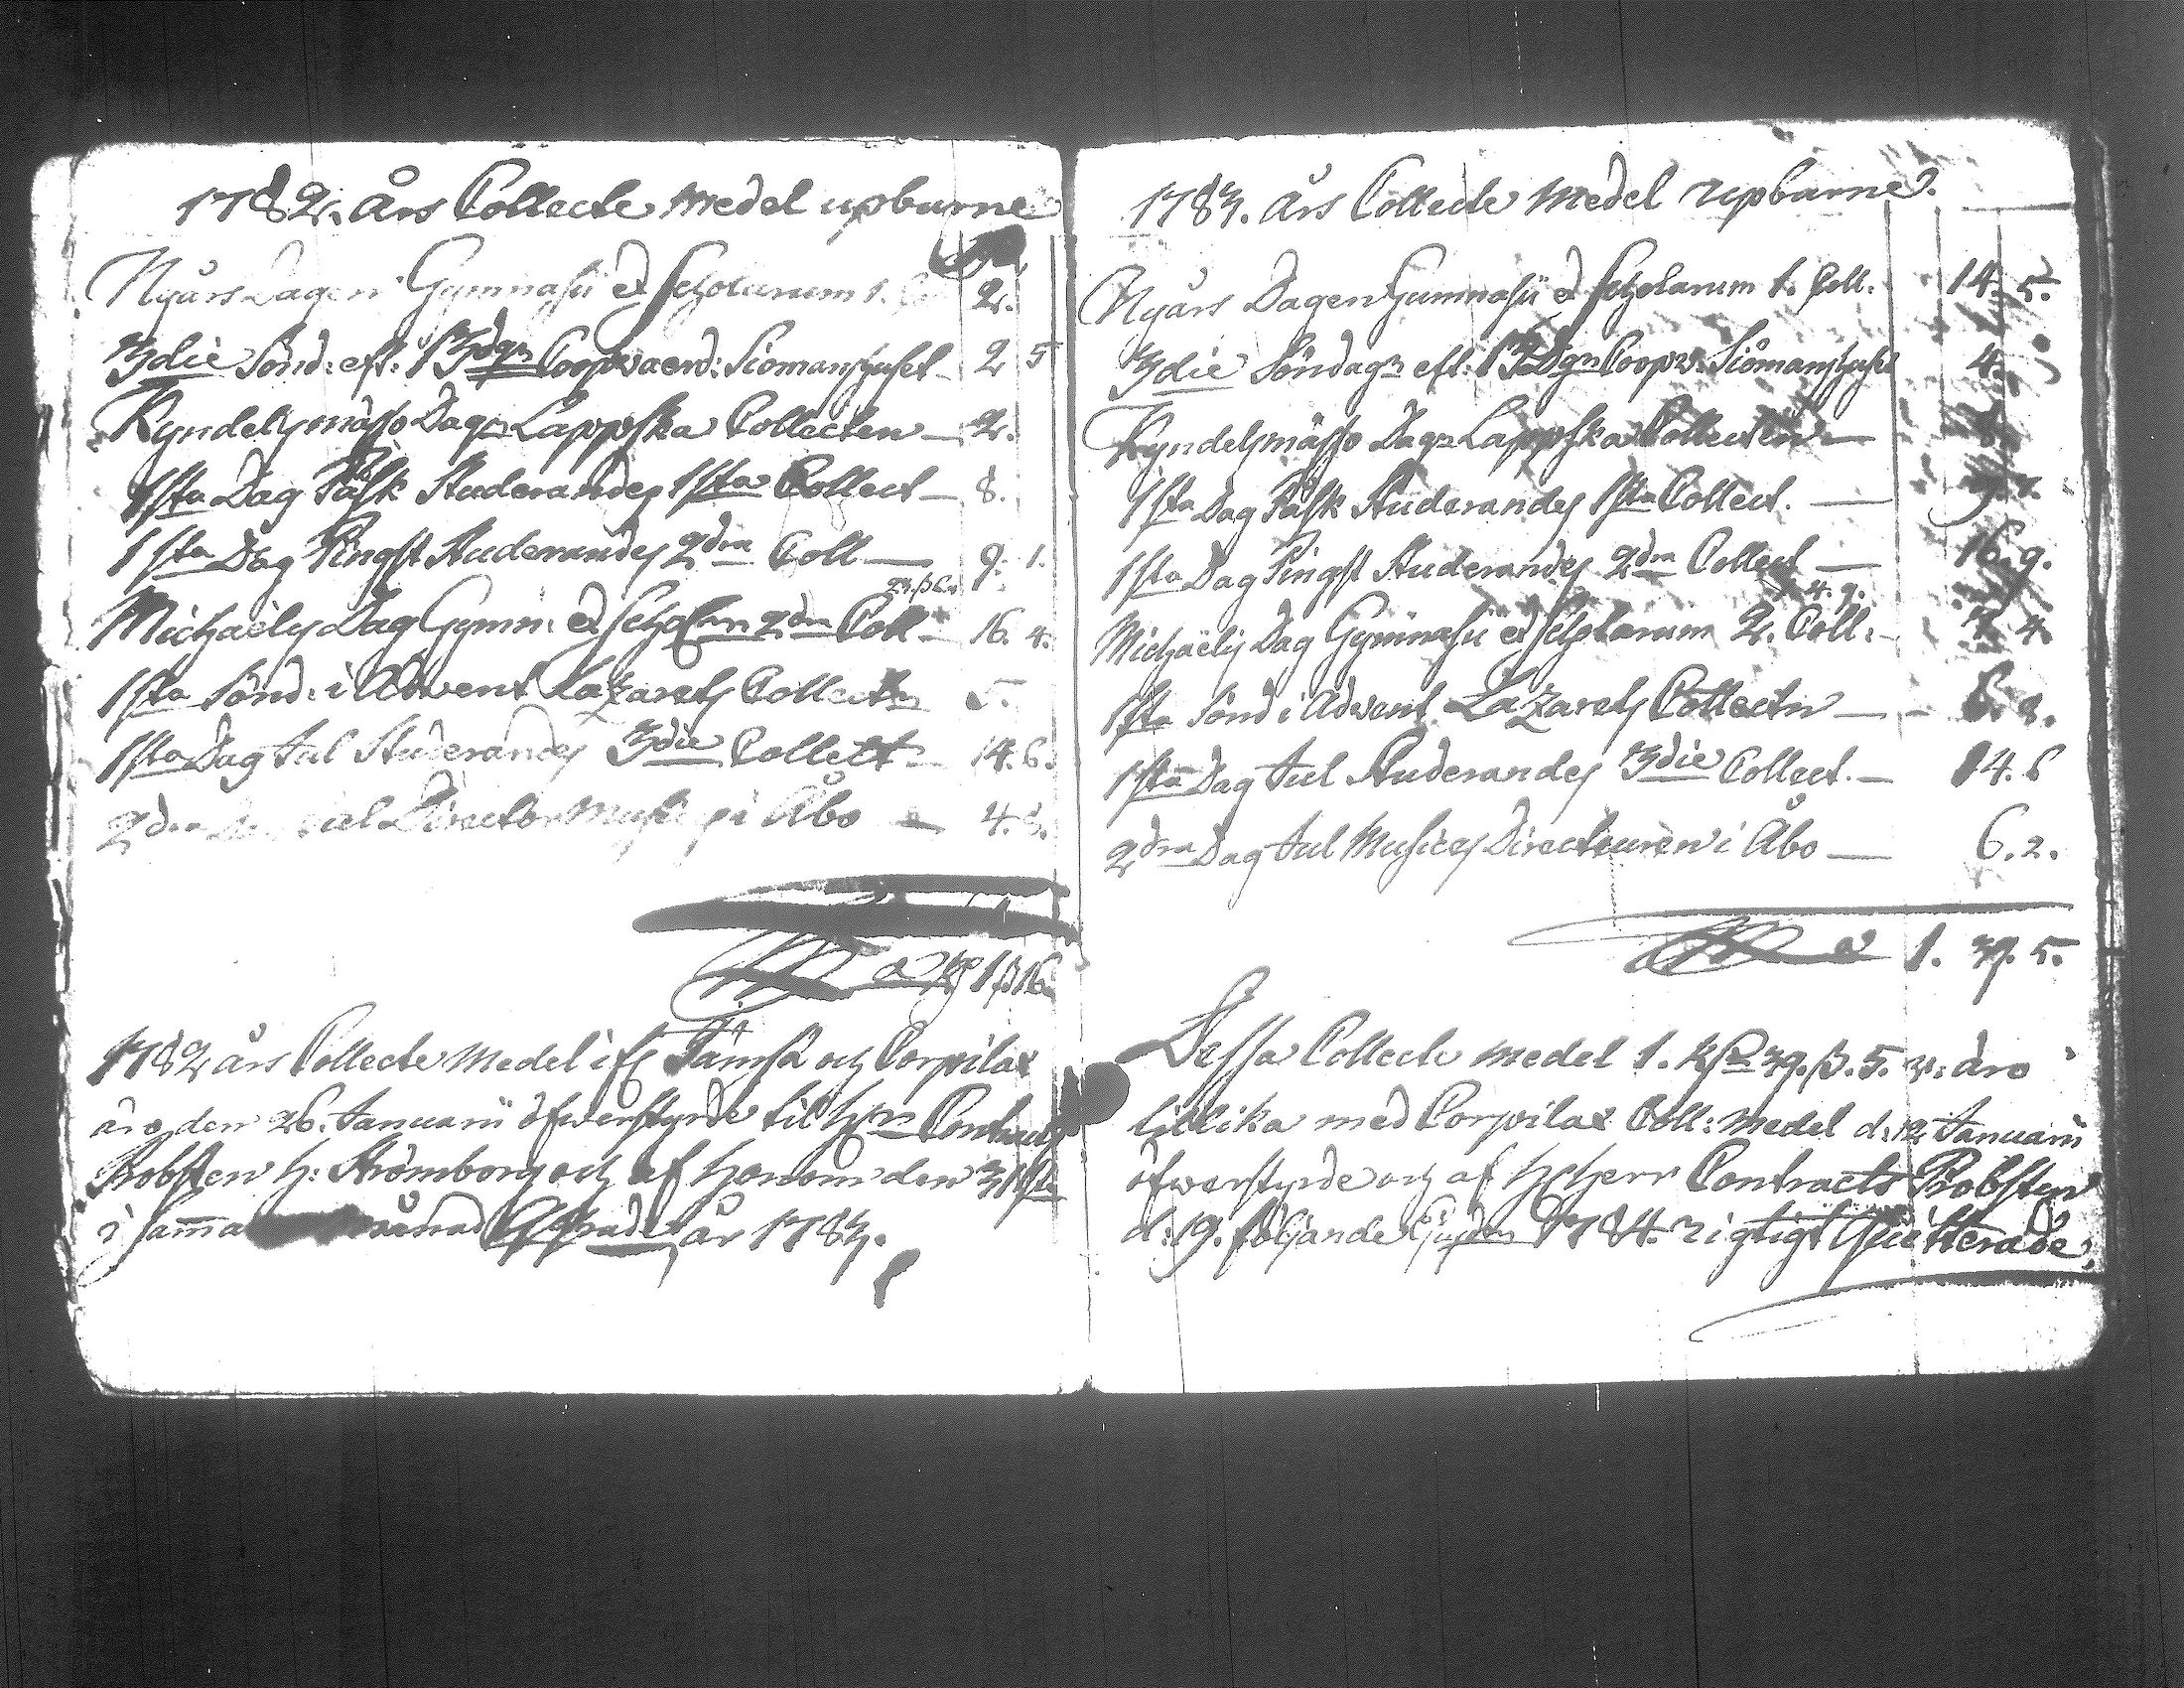 1782. Års Collecte Medel upburne
Nyårs Dagen Gymnasii et Scholarum 1. 2.
3die Sönd: eft: 13dgn Coopvaerd: Siömanshuset 2 5
Kyndelsmässo Dagn Lappska Collecten — 2.
1sta Dag Påsk Studerandes 1sta Collect — 8.
1sta Dag Pingst Studerandes 2dra Coll — 9. 1.
Michaëlis Dag Gymn: et Scholrn 2dra Coll — 16. 4.
1sta Sönd: i Advent Lazarets Collectn 5.
1sta Dag Jul Studerandes 3die Collect — 14. 6.
2dra Jul Director Musices i Åbo — 4. 8.
1 ß 16
1782 års Collecte Medel ifr Jämsä och Corpilax
äro den 26. Januarii öfwerstyrde til Hrn Contracts
Probsten H: Strömborg och af honom den 31sta
i samma månad år 1783.
1783. Års Collecte Medel upburne.
Nyårs Dagen Gymnasii et Scholarum 1. Coll. 14. 5.
3die Söndagn eft: 13Dgn Coopv: Siömanshuset 4.
Kyndelsmässo Dagn Lappska Collecten — 8.
1sta Dag Påsk Studerandes 1sta Collect. — 9. 1.
1sta Dag Pingst Studerandes 2dra Collect — 16. 9.
4. 9.
Michaëlis Dag Gymnasii et Scholarum 2. Coll: — 7. 4.
1sta Sönd i Advent Lazarets Collectn — 6. 8.
1sta Dag Jul Studerandes 3die Collect. — 14. 6
2dra Dag Jul Musices Directeuren i Åbo — 6. 2.
1. 39. 5.
Dessa Collecte medel 1. Rd 39. ß. 5. r: äro
tillika med Corpilax Coll: Medel d. 12 Januarii
öfwerstyrde och af H: Herr Contracts Probsten
d: 19. följande 1784. rigtigt Quitterade.